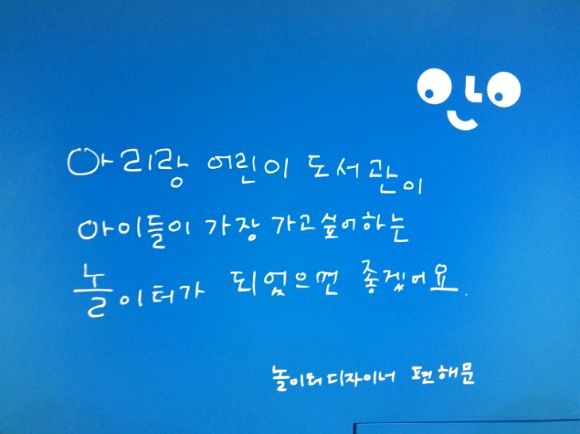 아리랑 어린이 도서관이
아이들이 가장 가고싶어하는
놀이터가 되었으면 좋겠어요.
놀이터디자이너 편해문